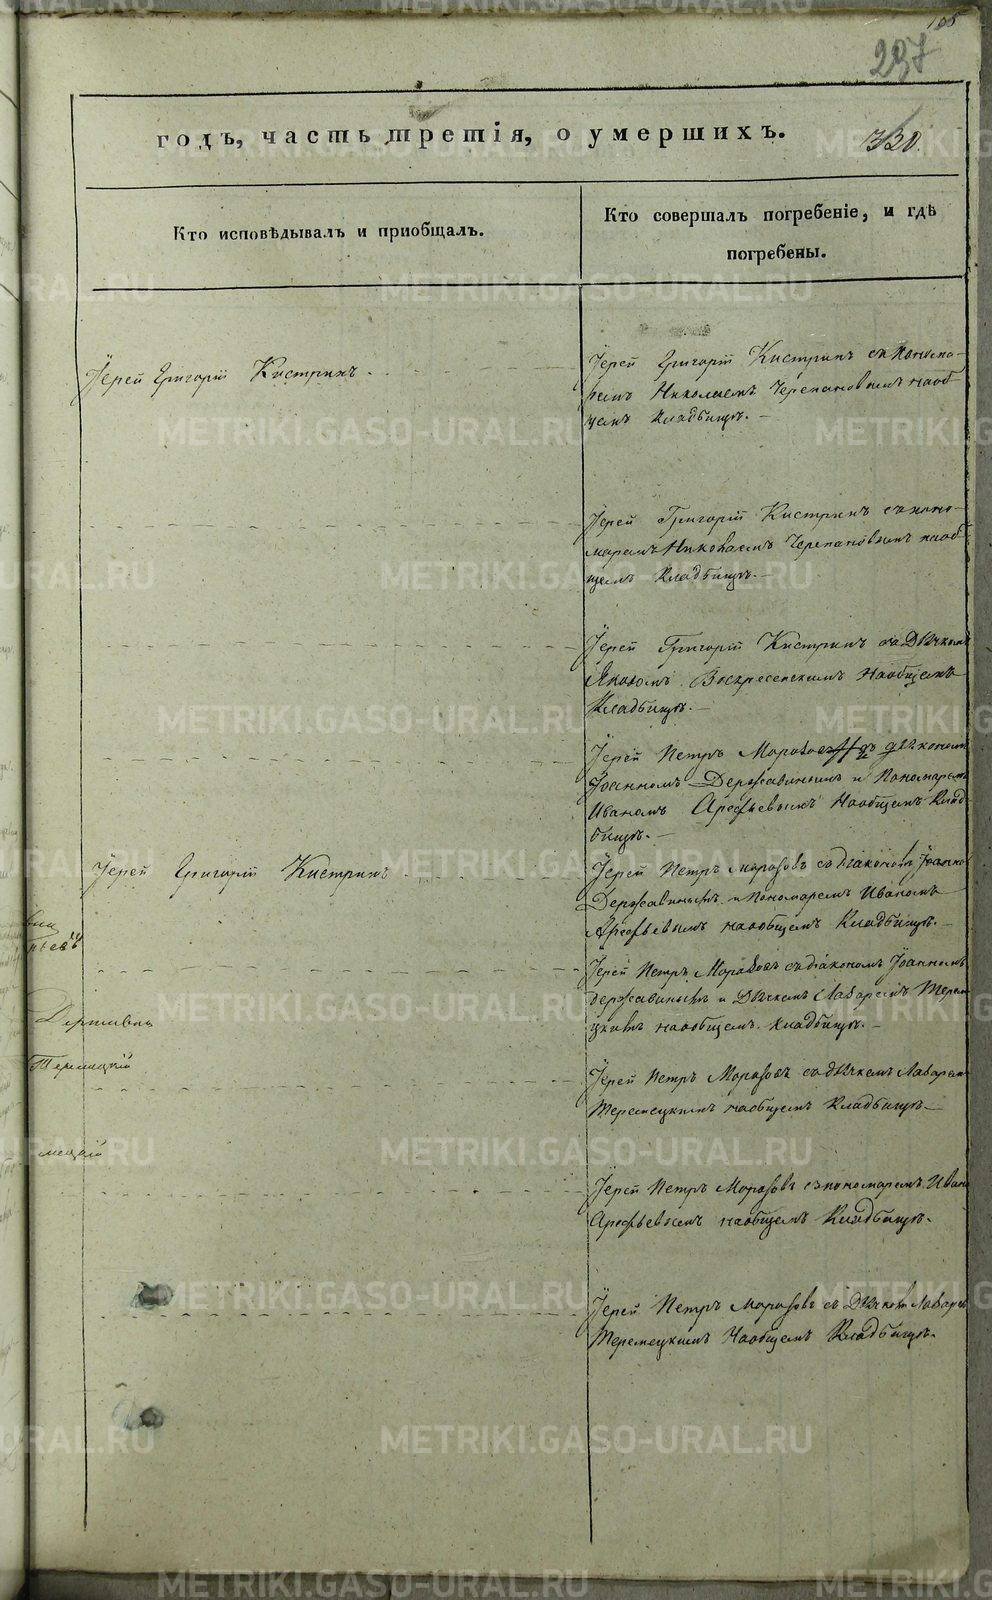 165
237
годъ, часть третія, о умершихъ.
330.
Кто исповѣдывалъ и приобщалъ.
Кто совершалъ погребеніе, и гдѣ
погребены.
Іерей Григорій Кистринъ.
Іерей Григорій Кистринъ съ Понома-
ремъ Николаемъ Черепановымъ на об-
щемъ Кладбищѣ.—
Іерей Григорій Кистринъ съ поно-
маремъ Николаемъ Черепановымъ на об-
щемъ Кладбищѣ.—
Іерей Григорій Кистринъ съ Дьячкомъ
Яковомъ Воскресенскимъ на общемъ
Кладбищѣ.—
Іерей Петръ Морозовъ дьякономъ
Іоанномъ Державинымъ и Пономаремъ
Иваномъ Арефьевымъ на общемъ Клад-
бищѣ.—
Іерей Григорій Кистринъ
Іерей Петръ Морозовъ съ діакономъ Іоанно
Державинымъ и пономаремъ Иваномъ
Арефьевымъ на общемъ Кладбищѣ.—
Іерей Петръ Морозовъ съ діакономъ Іоанномъ
Державинымъ и Дьячкомъ Лаваремъ Терем
цкимъ на общемъ кладбищѣ.—
Іерей Петръ Морозовъ съ дьячкомъ Лаварем
Теремецкимъ на общемъ Кладбищѣ.—
Іерей Петръ Морозовъ съ пономаремъ Ивано
Арефьевымъ на общемъ Кладбищѣ.
Іерей Петръ Морозовъ съ Дьячкомъ Лаваре
Теремецкимъ на общемъ Кладбищѣ.
мецкій
METRIKI.GASO-URAL.RU